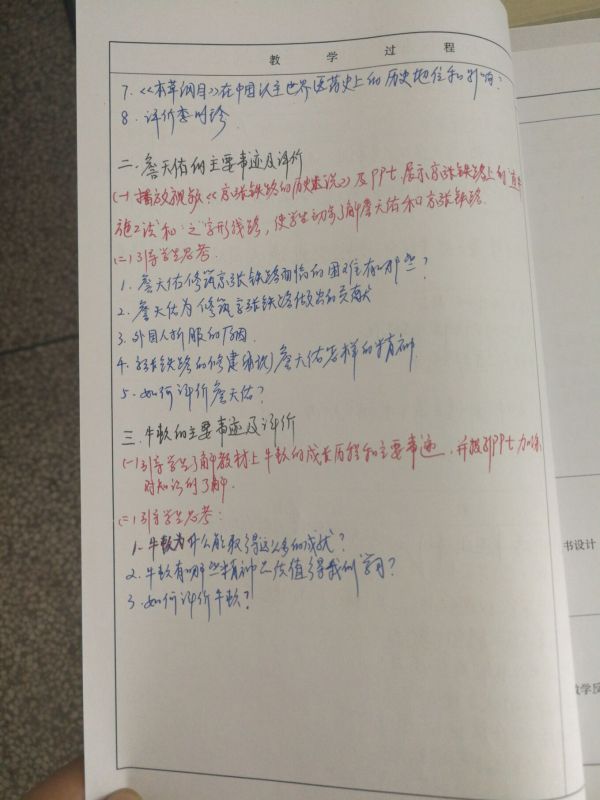 教 学 过 程
7. 《本草纲目》在中国以至世界医药史上的历史地位和影响?
8. 评价李时珍
二. 詹天佑的主要事迹及评价
(一) 播放视频《京张铁路的历史》及PPt, 展示京张铁路上的
施工法和"之"字形线路, 使学生切实了解詹天佑和京张铁路.
(二) 引导学生思考.
1. 詹天佑修筑京张铁路面临的困难有哪些?
2. 詹天佑为修筑京张铁路做出的贡献
3. 外国人折服的原因.
4. 京张铁路的修建体现詹天佑怎样的精神.
5. 如何评价詹天佑?
三. 牛顿的主要事迹及评价
(一) 引导学生了解教材上牛顿的成长历程和主要事迹, 并PPt加深
对知识的了解.
(二) 引导学生思考:
1. 牛顿为什么能取得这么多的成就?
2. 牛顿有哪些精神品质值得我们学习?
3. 如何评价牛顿?
书设计
教学反